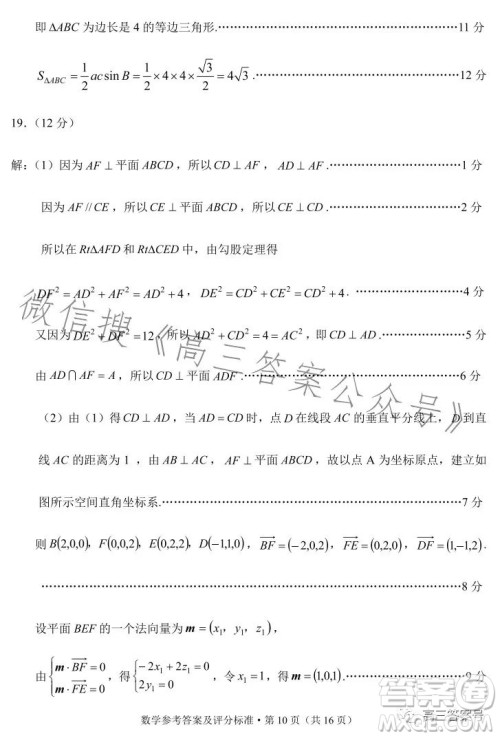 即 ΔABC 为边长是 4 的等边三角形.⋯⋯⋯⋯⋯⋯⋯⋯⋯⋯⋯⋯⋯⋯11 分
S_{ΔABC} = \frac{1}{2} ac sin B = \frac{1}{2} × 4 × 4 × \frac{\sqrt{3}}{2} = 4\sqrt{3} .⋯⋯⋯⋯⋯⋯⋯⋯⋯⋯⋯⋯12 分
19.（12 分）
解:（1）因为 AF ⊥ 平面 ABCD，所以 CD ⊥ AF ， AD ⊥ AF .⋯⋯⋯⋯⋯⋯⋯⋯1 分
因为 AF // CE，所以 CE ⊥ 平面 ABCD，所以 CE ⊥ CD .⋯⋯⋯⋯⋯⋯⋯⋯2 分
所以在 RtΔAFD 和 RtΔCED 中，由勾股定理得
DF² = AD² + AF² = AD² + 4 ，DE² = CD² + CE² = CD² + 4 .⋯⋯⋯⋯⋯⋯⋯⋯4 分
又因为 DE² + DF² = 12，所以 AD² + CD² = 4 = AC² ，即 CD ⊥ AD .⋯⋯⋯⋯⋯⋯5 分
由 AD ∩ AF = A，所以 CD ⊥ 平面 ADF .⋯⋯⋯⋯⋯⋯⋯⋯⋯⋯⋯⋯6 分
（2）由（1）得 CD ⊥ AD，当 AD = CD 时，点 D 在线段 AC 的垂直平分线上，D 到直
线 AC 的距离为 1 ，由 AF ⊥ 平面 ABCD，故以点 A 为坐标原点，建立如
图所示空间直角坐标系.⋯⋯⋯⋯⋯⋯⋯⋯⋯⋯⋯⋯⋯⋯⋯⋯7 分
则 B(2,0,0)，F(0,0,2)，E(0,2,2)，D(-1,1,0)，\overrightarrow{BF} = (-2,0,2)，\overrightarrow{FE} = (0,2,0)，\overrightarrow{DF} = (1,-1,2).
⋯⋯⋯⋯⋯⋯⋯⋯⋯⋯⋯⋯⋯⋯⋯⋯⋯⋯⋯⋯8 分
设平面 BEF 的一个法向量为 m = (x₁，y₁，z₁)，
由 {m · \overrightarrow{BF} = 0, m · \overrightarrow{FE} = 0 ，得 {-2x₁ + 2z₁ = 0, 2y₁ = 0 ，令 x₁ = 1，得 m = (1,0,1).
数学参考答案及评分标准 • 第 10 页（共 16 页）
微信搜《高三答案公众号》
高三答案号
答案圈